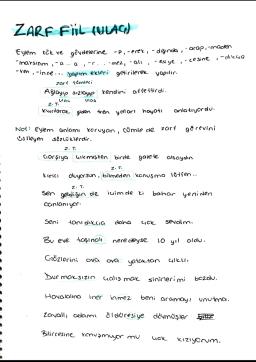 ZARF FİİL (ULAÇ)
Eylem kök ve gövdelerine -ıp, -erek, -dığında, -arap, -madan
-maksızın, -a -a, -r... -mez, -alı, -esiye, -cesine, -dıkça
-ken, -ince... yapım ekleri getirilerek yapılır.
zarf tümleci
Ağlayıp sızlayıp kendini affettirdi.
ulaç ulaç
z.T.
giden tren yolları hayatı anlatıyordu.
Not: Eylem anlamı koruyan, cümlede zarf görevini
üstlenen sözcüklerdir.
z.T.
Çarşıya çıkmışken birde gazete alsaydın
z.T.
duyarsun, bilmeden konuşma lütfen..
z.T.
Sen geldiğin de içimde ki bahar yeniden
canlanıyor.
Seni tanıdıkça daha çok sevdim.
Bu eve taşınalı neredeyse 10 yıl oldu.
Gözlerini ova ova yataktan çıktı.
Durmaksızın çalışmak sinirlerimi bozdu.
Havaalına iner inmez beni aramayı unutma.
Zavallı adamı öldüresiye dövmüşler
Bilircesine konuşmıyor mu çok kızıyorum.